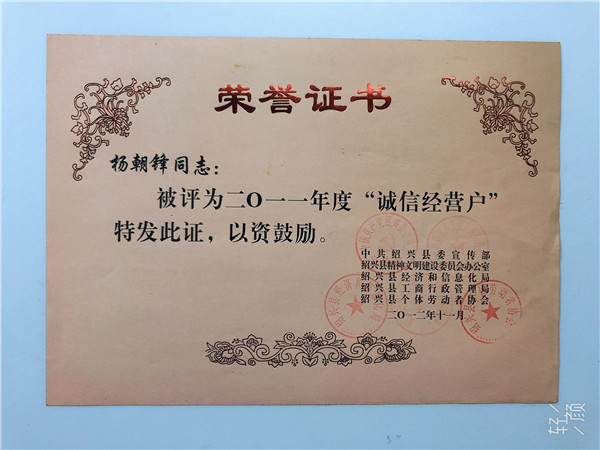 荣誉证书
杨朝锋同志：
被评为二〇一一年度“诚信经营户”
特发此证，以资鼓励。
中共绍兴县委宣传部
绍兴县精神文明建设委员会办公室
绍兴县经济和信息化局
绍兴县工商行政管理局
绍兴县个体劳动者协会
二〇一二年十一月
轻颜